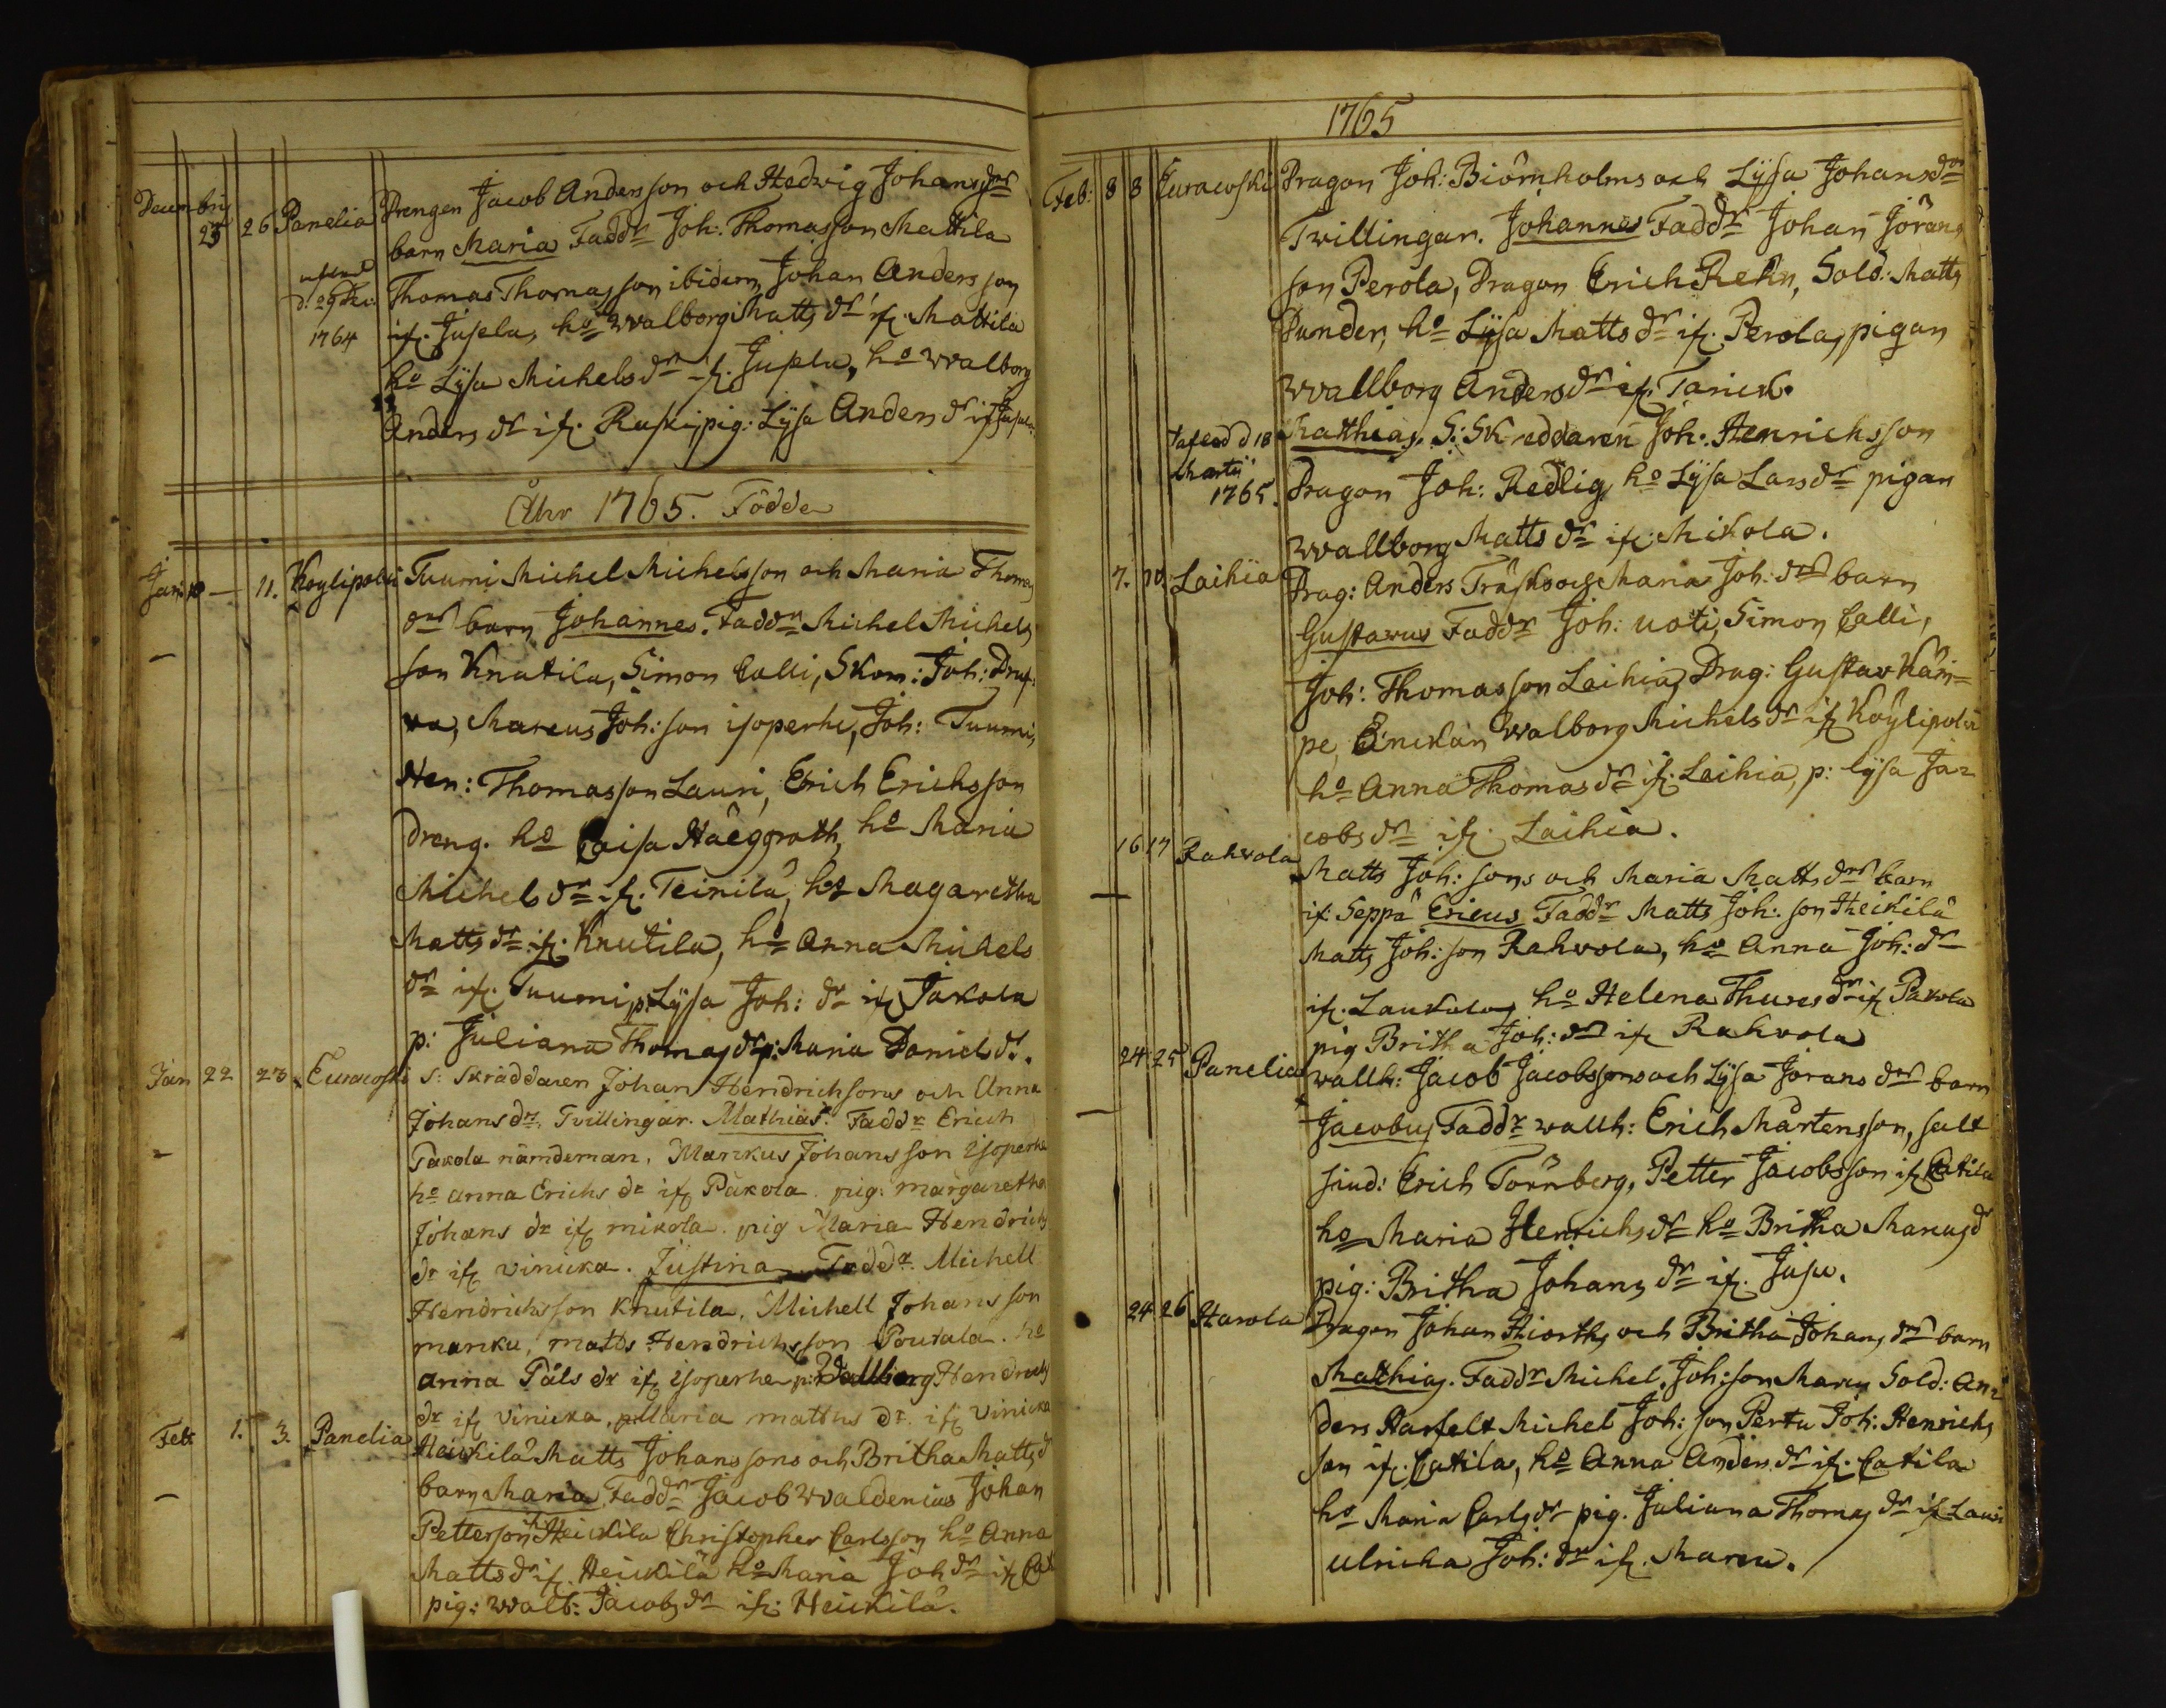 Decembris 25 26 Panelia Drengen Jacob Andersson och Hedwig Johansdrs
barn Maria Faddr Joh: Thomasson Mattila
Thomas Thomasson ibidem, Johan Andersson
d. 29 1764
if. Jusela, ho Walborg Mattsdr if. Mattila
ho Lysa Michelsdr if. Jusela, ho Walborg
Andersdr if. Ruski, pig: Lysa Andersdr if Jusela
Åhr 1765. Födde
Jan: 10 — 11. Köylipolvi Tuumi Michel Michelsson och Maria Thomas
drs barn Johannes. Faddr Michel Michels
son Knutila, Simon Calli, Skom: Joh:
va, Marcus Joh: son isoperhe, Joh: Tuumi,
Hen: Thomasson Lauri, Erich Erichsson
dreng. ho Caisa Häggroth, ho Maria
Michelsdr if. Teinilä, ho Magaretha
Mattsdr if. Knutila, ho Anna Michels
dr if. Tuumi, p: Lysa Joh: dr if Jakola
p: Juliana Thomasdr p: Maria Daniels dr.
Jan 22 23 Euracoski S: Skräddaren Johan Hendrichsons och Anna
Johansdr. Tvillingar. Mathias. Faddr Erich
Pakola nämdeman, Markus Johansson Isoperhe
ho Anna Erichs dr if Päkola. pig: margaretha
Johans dr if mikola. pig Maria Hendrichs
dr if vinicka. Justina Faddr. Michell
Hendrichsson Knutila. Michell Johansson
marcku, matts Hendrichsson Poukala. ho
anna Påls dr if isoperhe p: Wallborg Hendrichs
dr if vinicka, p: Maria matthis dr. if vinicka
Feb 1. 3. Panelia Heickilä Matts Johanssons och Britha Mattsd
barn Maria, Faddr Jacob Waldenius Johan
Petterson Heickila Christopher Carlsson ho Anna
Mattsdr if. Heickilä ho Maria Joh dr if Cat
pig: Walb: Jacobsdr if: Heickilä.
1765
Feb: 8 8 Euracoski Dragon Joh: Biörnholms och Lysa Johansdrs
Tvillingar. Johannes Faddr Johan Jörans
son Perola, Dragon Erich Rehn, Sold: Matts
Dunder, ho Lysa Mattsdr if. Perola, pigan
Wallborg Andersdr if. Tanick.
d 18 Martii 1765.
Matthias. S: Skreddaren Joh: Henrichsson
Dragon Joh: Redlig, ho Lysa Larsdr pigan
Wallborg Mattsdr if. Mikola.
7. 10 Laihia Drag: Anders Träsks och Maria Joh: drs barn
Gustavus Faddr Joh: uoti, Simon Calli,
Joh: Thomasson Laihia, Drag: Gustav Käm=
pe, Enckan Walborg Michelsdr if Köylipolvi
ho Anna Thomasdr if. Laihia, p: lysa Ja=
cobsdr if. Laihia.
16 17 Rahvola Matts Joh: sons och Maria Mattsdrs barn
if: Seppä Ericus Faddr Matts Joh: son Heikilä
Matts Joh: son Rahvola, ho Anna Joh: dr
if. Laukola, ho Helena Thuresdr if Pakola
pig Britha Joh: dr if Rahvola
24 25 Panelia wallb: Jacob Jacobssons och Lysa Jörans drs barn
Jacobus Faddr wallb: Erich Mårtensson, salt
siud: Erich Törnberg, Petter Jacobsson if Catila
ho Maria Henrichsdr ho Britha Marcusd
pig: Britha Johansdr if. Juju.
24 26 Harola Dragon Johan Hiorths och Britha Johansdrs barn
Matthias. Faddr Michel Joh: son Marcu Sold: An=
ders Harfelt Michel Joh: son Perttu Joh: Henrichs
son if. Catila, ho Anna Anders dr if. Catila
ho Maria Carlsdr pig. Juliana Thomasdr if Lauri
Ulricka Joh: dr if. Marcu.